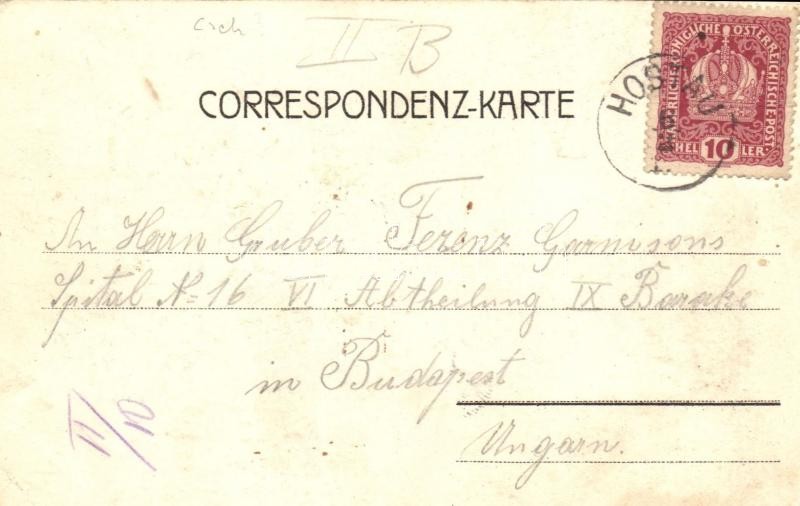 csch
II B
CORRESPONDENZ-KARTE
KAISERLICHE KÖNIGLICHE ÖSTERREICHISCHE POST
HELLER
10
HOSTAU
An Herrn Gruber Ferenz Garnisons
Spital No 16 VI Abtheilung IX Baracke
in Budapest
Ungarn.
II/10